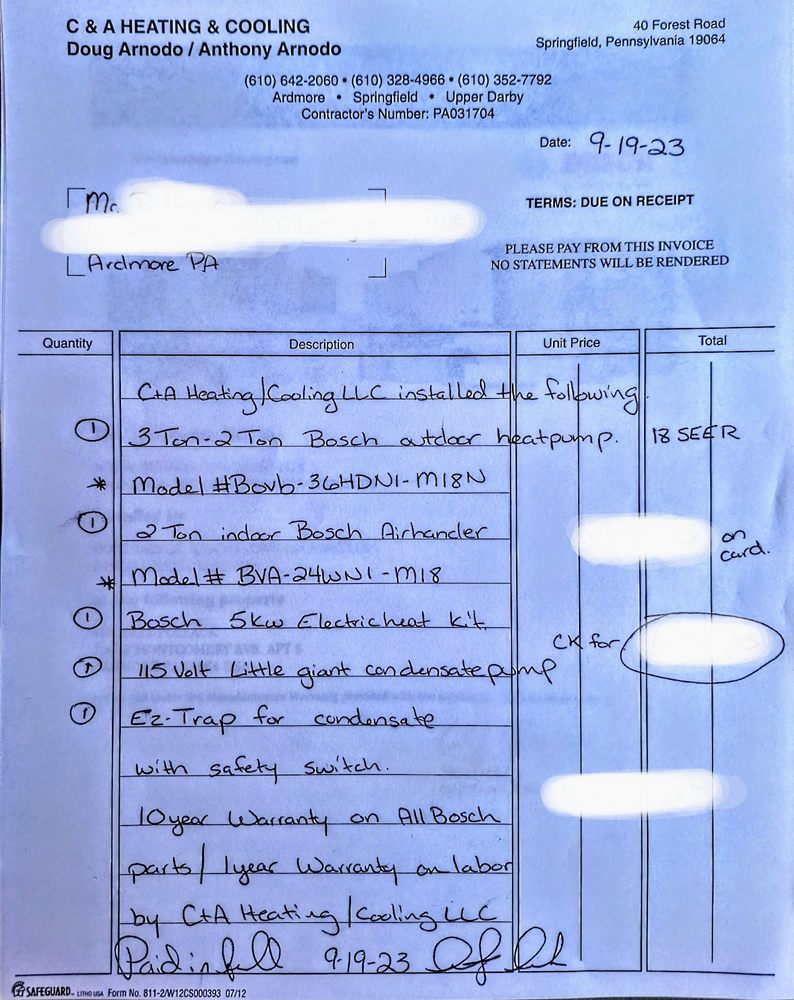 C & A HEATING & COOLING
Doug Arnodo / Anthony Arnodo
40 Forest Road
Springfield, Pennsylvania 19064
(610) 642-2060 • (610) 328-4966 • (610) 352-7792
Ardmore • Springfield • Upper Darby
Contractor's Number: PA031704
Date: 9-19-23
Mr.
Ardmore PA
TERMS: DUE ON RECEIPT
PLEASE PAY FROM THIS INVOICE
NO STATEMENTS WILL BE RENDERED
Quantity Description Unit Price Total
C+A Heating/Cooling LLC installed the following.
1 3 Ton-2 Ton Bosch outdoor heatpump. 18 SEER
* Model #Bovb-36HDN1-M18N
1 2 Ton indoor Bosch Airhandler
on card.
* Model# BVA-24WN1-M18
1 Bosch 5kw Electricheat kit.
CK for
1 115 Volt Little giant condensate pump
1 Ez-Trap for condensate
with safety switch.
10 year Warranty on All Bosch
parts/ 1 year Warranty on labor
by C+A Heating/Cooling LLC
Paid in full 9-19-23
SAFEGUARD LITHO USA Form No. 811-2/W12CS000393 07/12